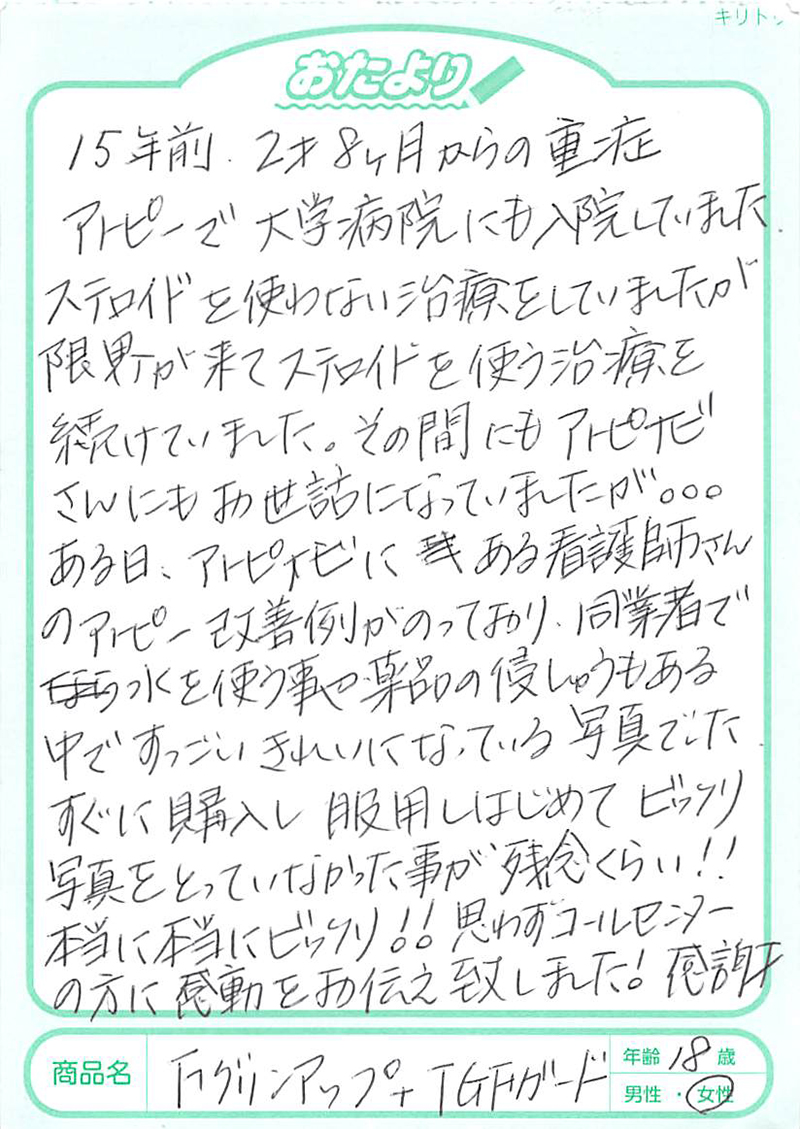 キリト
おたより
15年前. 2才8ヶ月からの重症
アトピーで大学病院にも入院していました
ステロイドを使わない治療をしていましたが
限界が来てステロイドを使う治療を
続けていました。その間にもアトピナビ
さんにもお世話になっていましたが。。。
ある日、アトピナビに ある看護師さん
のアトピー改善例がのっており、同業者で
水を使う事や薬品の侵しゅうもある
中ですっごいきれいになっている写真でした
すぐに購入し 服用しはじめてビックリ
写真をとっていなかった事が残念くらい!!
本当に本当にビックリ!! 思わずコールセンター
の方に感動をお伝え致しました! 感謝
商品名 グリンアップ+TGFガード
年齢 18 歳
男性・女性